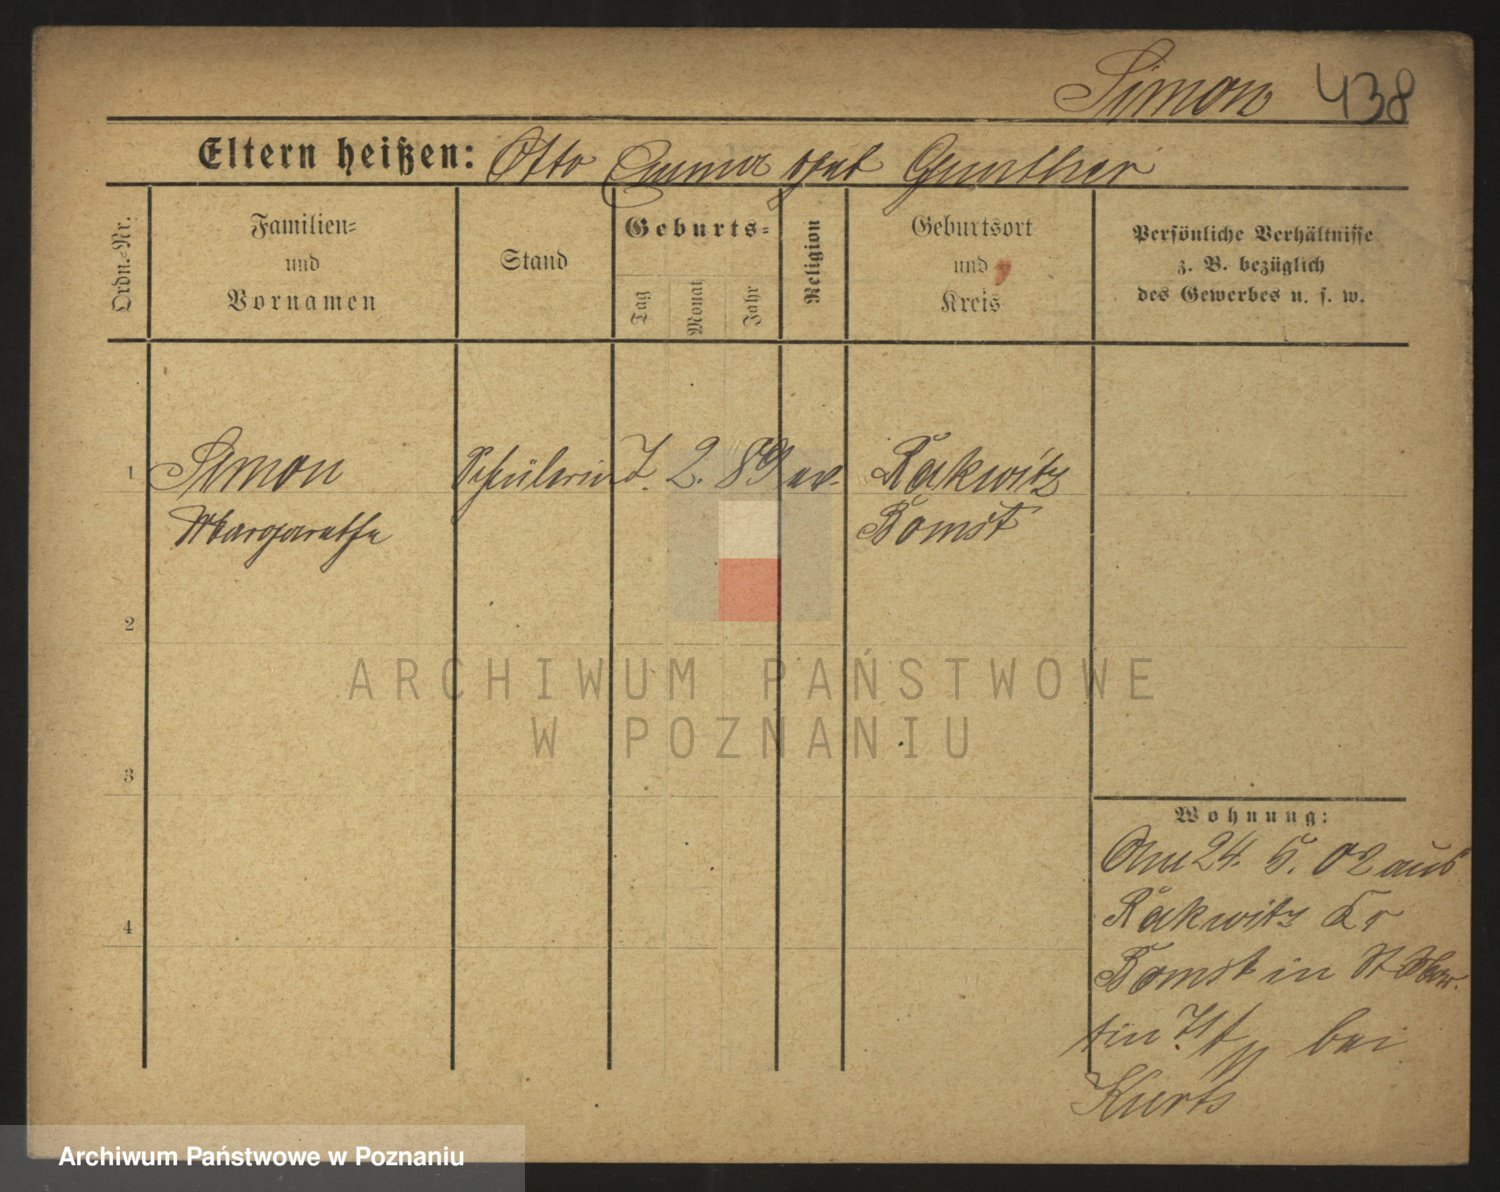 Simon 438
Eltern heißen: Otto Emma geb Gunther
Ordn.-Nr.
Familien-
und
Vornamen
Stand
Geburts-
Tag
Monat
Jahr
Religion
Geburtsort
und
Kreis
Persönliche Verhältnisse
z. B. bezüglich
des Gewerbes u. s. w.
1 Simon Schülerin 7. 2. 89 ev. Rakwitz
Margarethe Bomst
2
3
4
Wohnung:
Am 24. 5. 02 aus
Rakwitz Kr
Bomst in St Mar-
tin bei
Kurts
ARCHIWUM PAŃSTWOWE
W POZNANIU
Archiwum Państwowe w Poznaniu